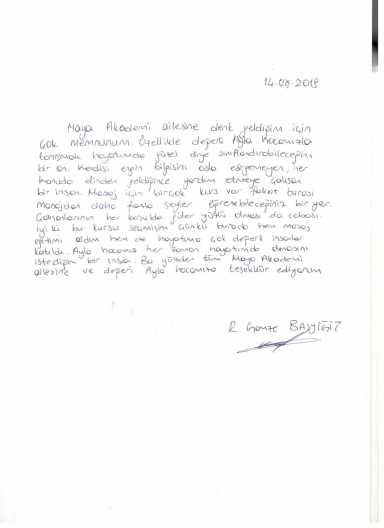 14.08.2018
Maya Akademi ailesine denk geldiğim için
çok memnunum. Özellikle değerli Ayla Hocamızla
tanışmak hayatımda güzel diye sınıflandırabileceğim
bir an. Kendisi eşsiz bilgisini asla esirgemeyen, her
konuda elinden geldiğince yardım etmeye çalışan
bir insan. Masaj için birçok kurs var fakat burası
masajdan daha fazla şeyler öğrenebileceğiniz bir yer.
Çalışanlarının her koşulda güler yüzlü olması da cabası.
İyi ki bu kursu seçmişim çünkü burada hem masaj
eğitimi aldım hem de hayatıma çok değerli insanlar
katıldı. Ayla hocamız her zaman hayatımda olmasını
istediğim bir insan. Bu yüzden tüm Maya Akademi
ailesine ve değerli Ayla hocamıza teşekkür ediyorum
R. Gamze BAŞYİĞİT